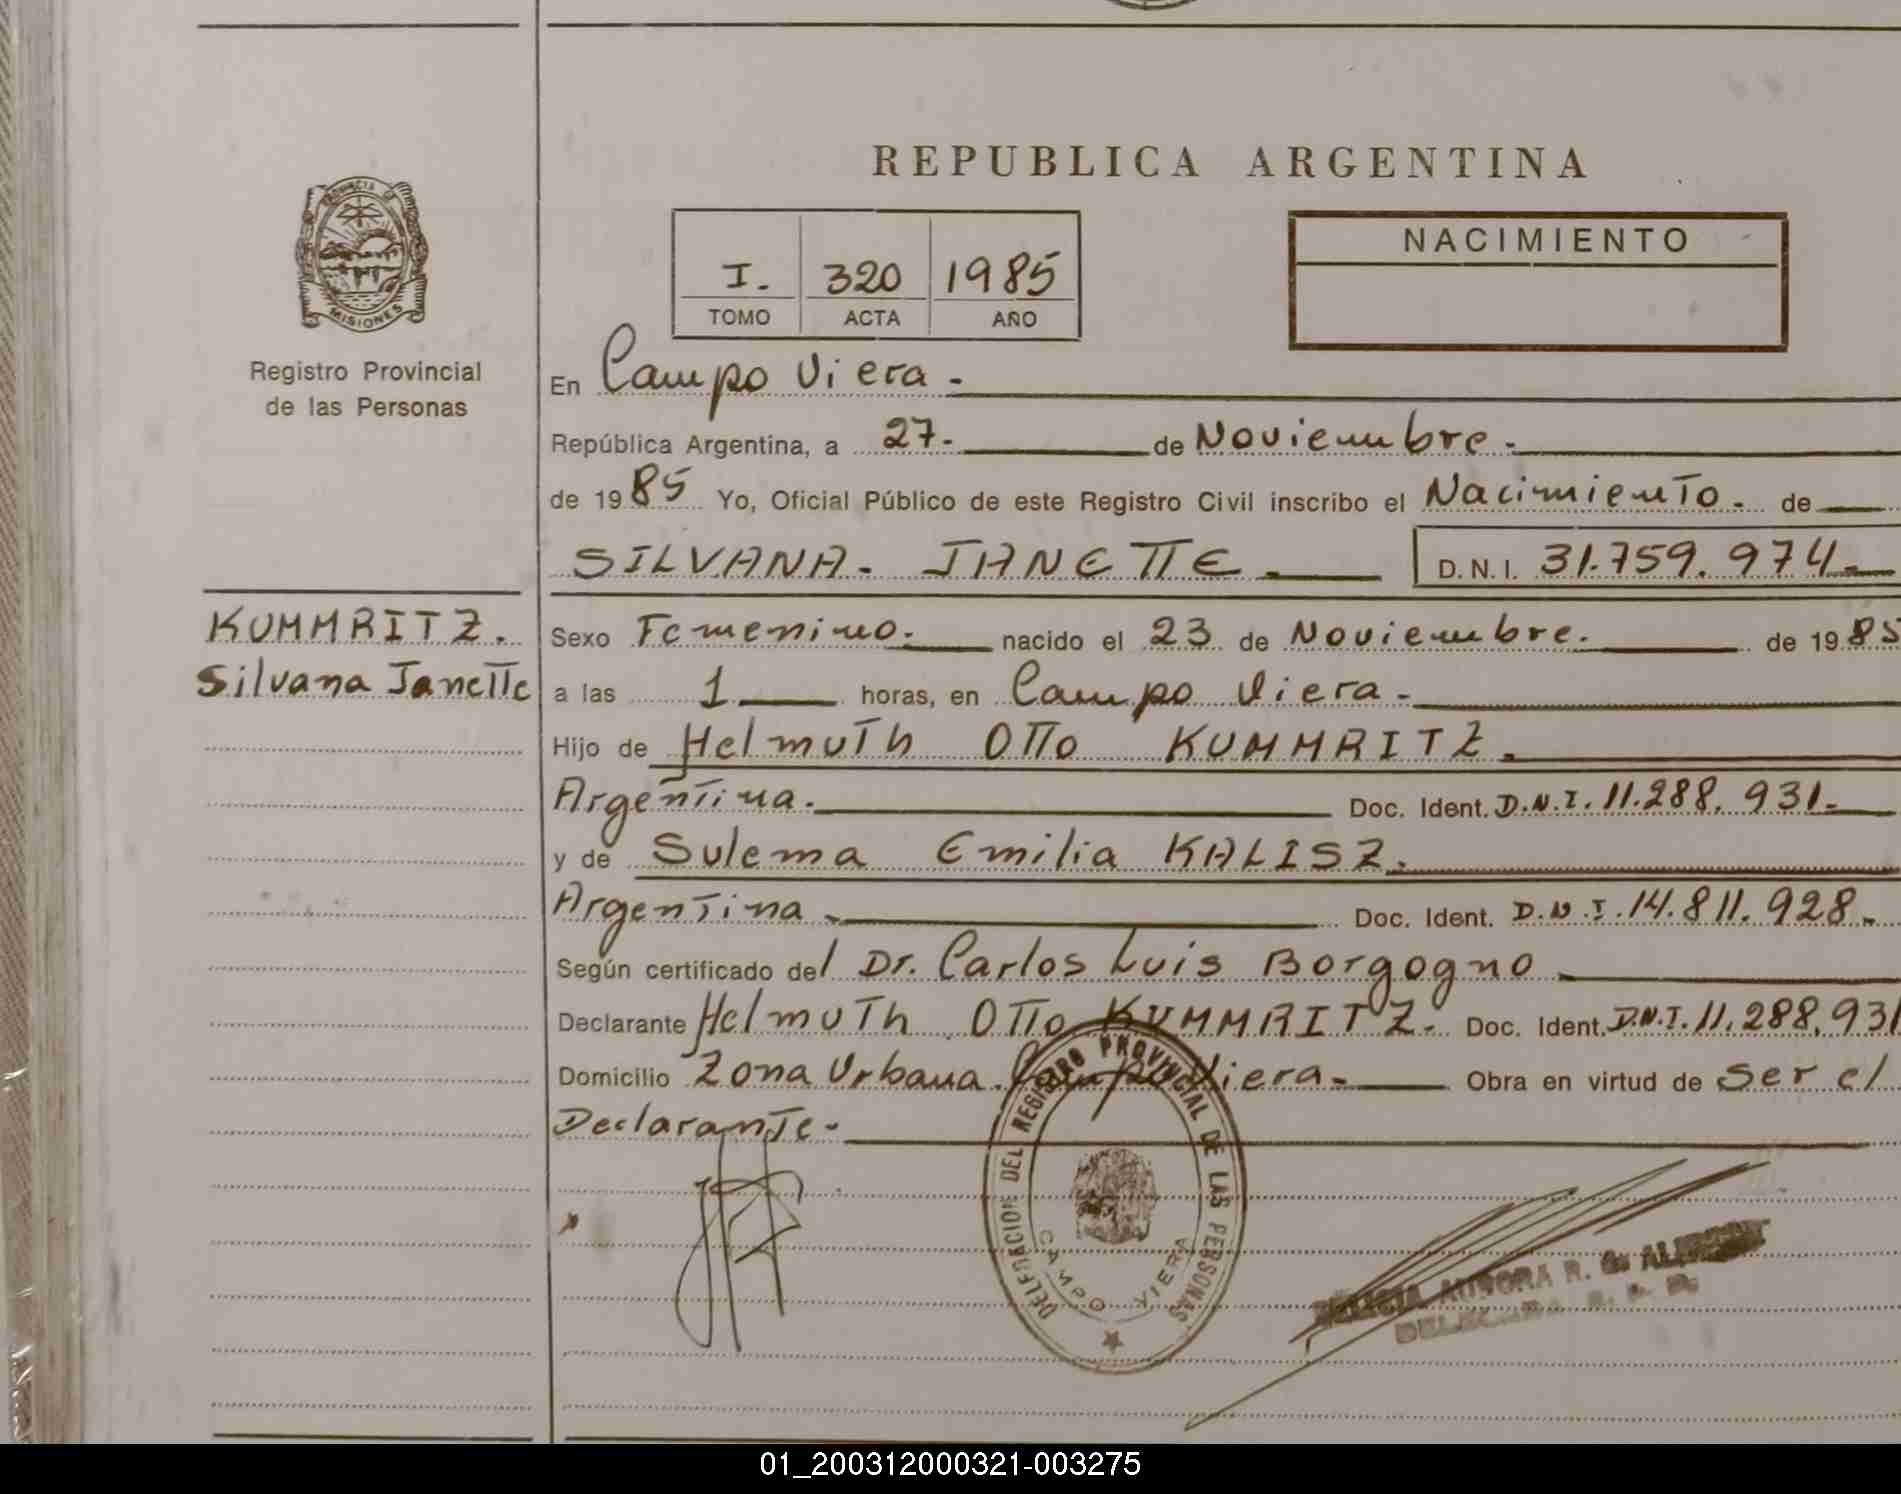 REPUBLICA ARGENTINA
PROVINCIA
MISIONES
Registro Provincial
de las Personas
I. 320 1985
TOMO ACTA AÑO
NACIMIENTO
En Campo Viera.
República Argentina, a 27. de Noviembre.
de 1985 Yo, Oficial Público de este Registro Civil inscribo el Nacimiento. de
SILVANA. JANETTE. D.N.I. 31.759.974.
KUMMRITZ.
Silvana Janette
Sexo Femenino. nacido el 23 de Noviembre. de 1985
a las 1 horas, en Campo Viera.
Hijo de Helmuth Otto KUMMRITZ.
Argentina. Doc. Ident. D.N.I. 11.288.931.
y de Sulema Emilia KALISZ.
Argentina. Doc. Ident. D.N.I. 14.811.928.
Según certificado del Dr. Carlos Luis Borgogno
Declarante Helmuth Otto KUMMRITZ. Doc. Ident. D.N.I. 11.288.931
Domicilio Zona Urbana. Campo Viera. Obra en virtud de Ser el
Declarante.
DELEGACION DEL REGISTRO PROVINCIAL DE LAS PERSONAS
CAMPO VIERA
AURORA R. G.
01_200312000321-003275